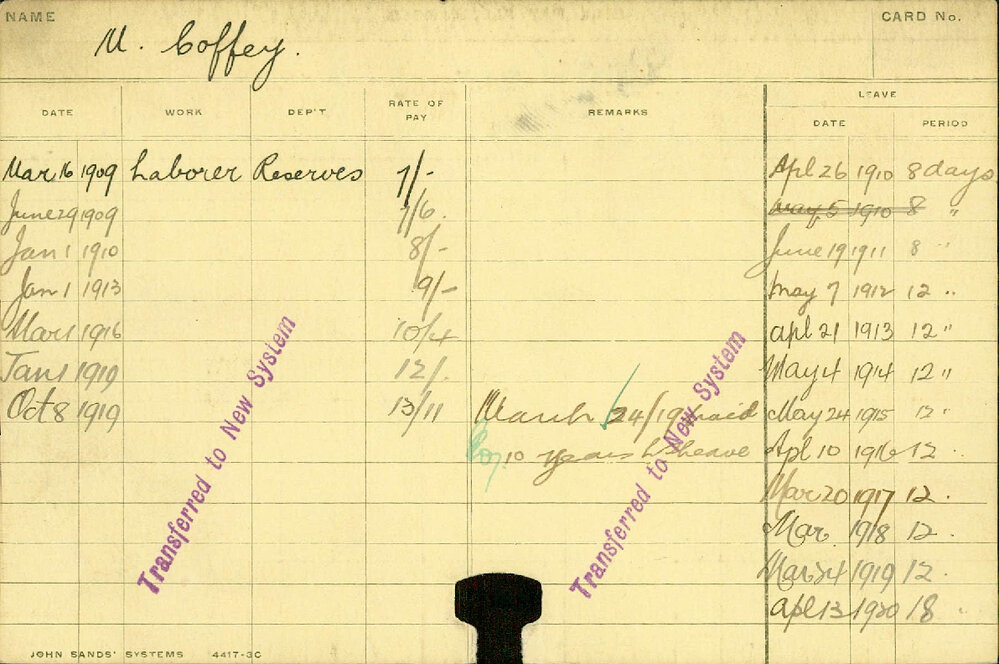 NAME
CARD No.
M. Coffey.
DATE WORK DEP'T RATE OF PAY REMARKS LEAVE
DATE PERIOD
Mar 16 1909 Laborer Reserves 7/- Apl 26 1910 8 days
June 29 1909 7/6. May 5 1910 8 "
Jan 1 1910 8/- June 19 1911 8 "
Jan 1 1913 9/- May 7 1912 12 "
Mar 1 1916 10/4 Apl 21 1913 12 "
Jan 1 1919 12/. May 4 1914 12 "
Oct 8 1919 13/11 March 24/19 paid May 24 1915 12 "
10 years leave Apl 10 1916 12 "
Mar 20 1917 12 "
Mar 1918 12 "
Mar 24 1919 12 "
Apl 13 1920 18 "
Transferred to New System
Transferred to New System
JOHN SANDS' SYSTEMS 4417-3C